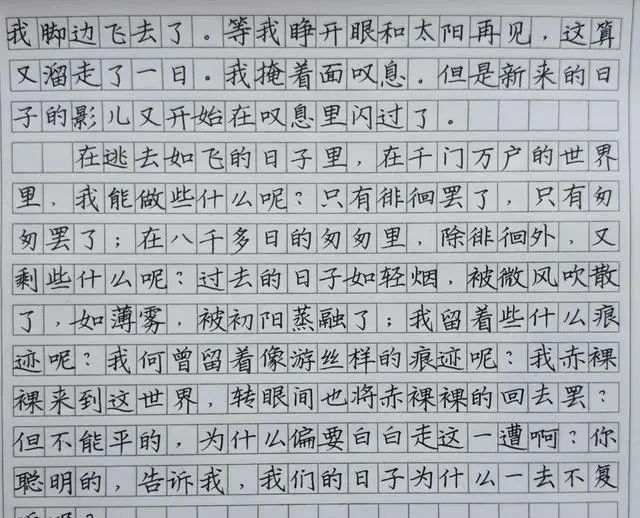 我脚边飞去了。等我睁开眼和太阳再见，这算
又溜走了一日。我掩着面叹息。但是新来的日
子的影儿又开始在叹息里闪过了。
在逃去如飞的日子里，在千门万户的世界
里，我能做些什么呢？只有徘徊罢了，只有匆
匆罢了；在八千多日的匆匆里，除徘徊外，又
剩些什么呢？过去的日子如轻烟，被微风吹散
了，如薄雾，被初阳蒸融了；我留着些什么痕
迹呢？我何曾留着像游丝样的痕迹呢？我赤裸
裸来到这世界，转眼间也将赤裸裸的回去罢？
但不能平的，为什么偏要白白走这一遭啊？你
聪明的，告诉我，我们的日子为什么一去不复